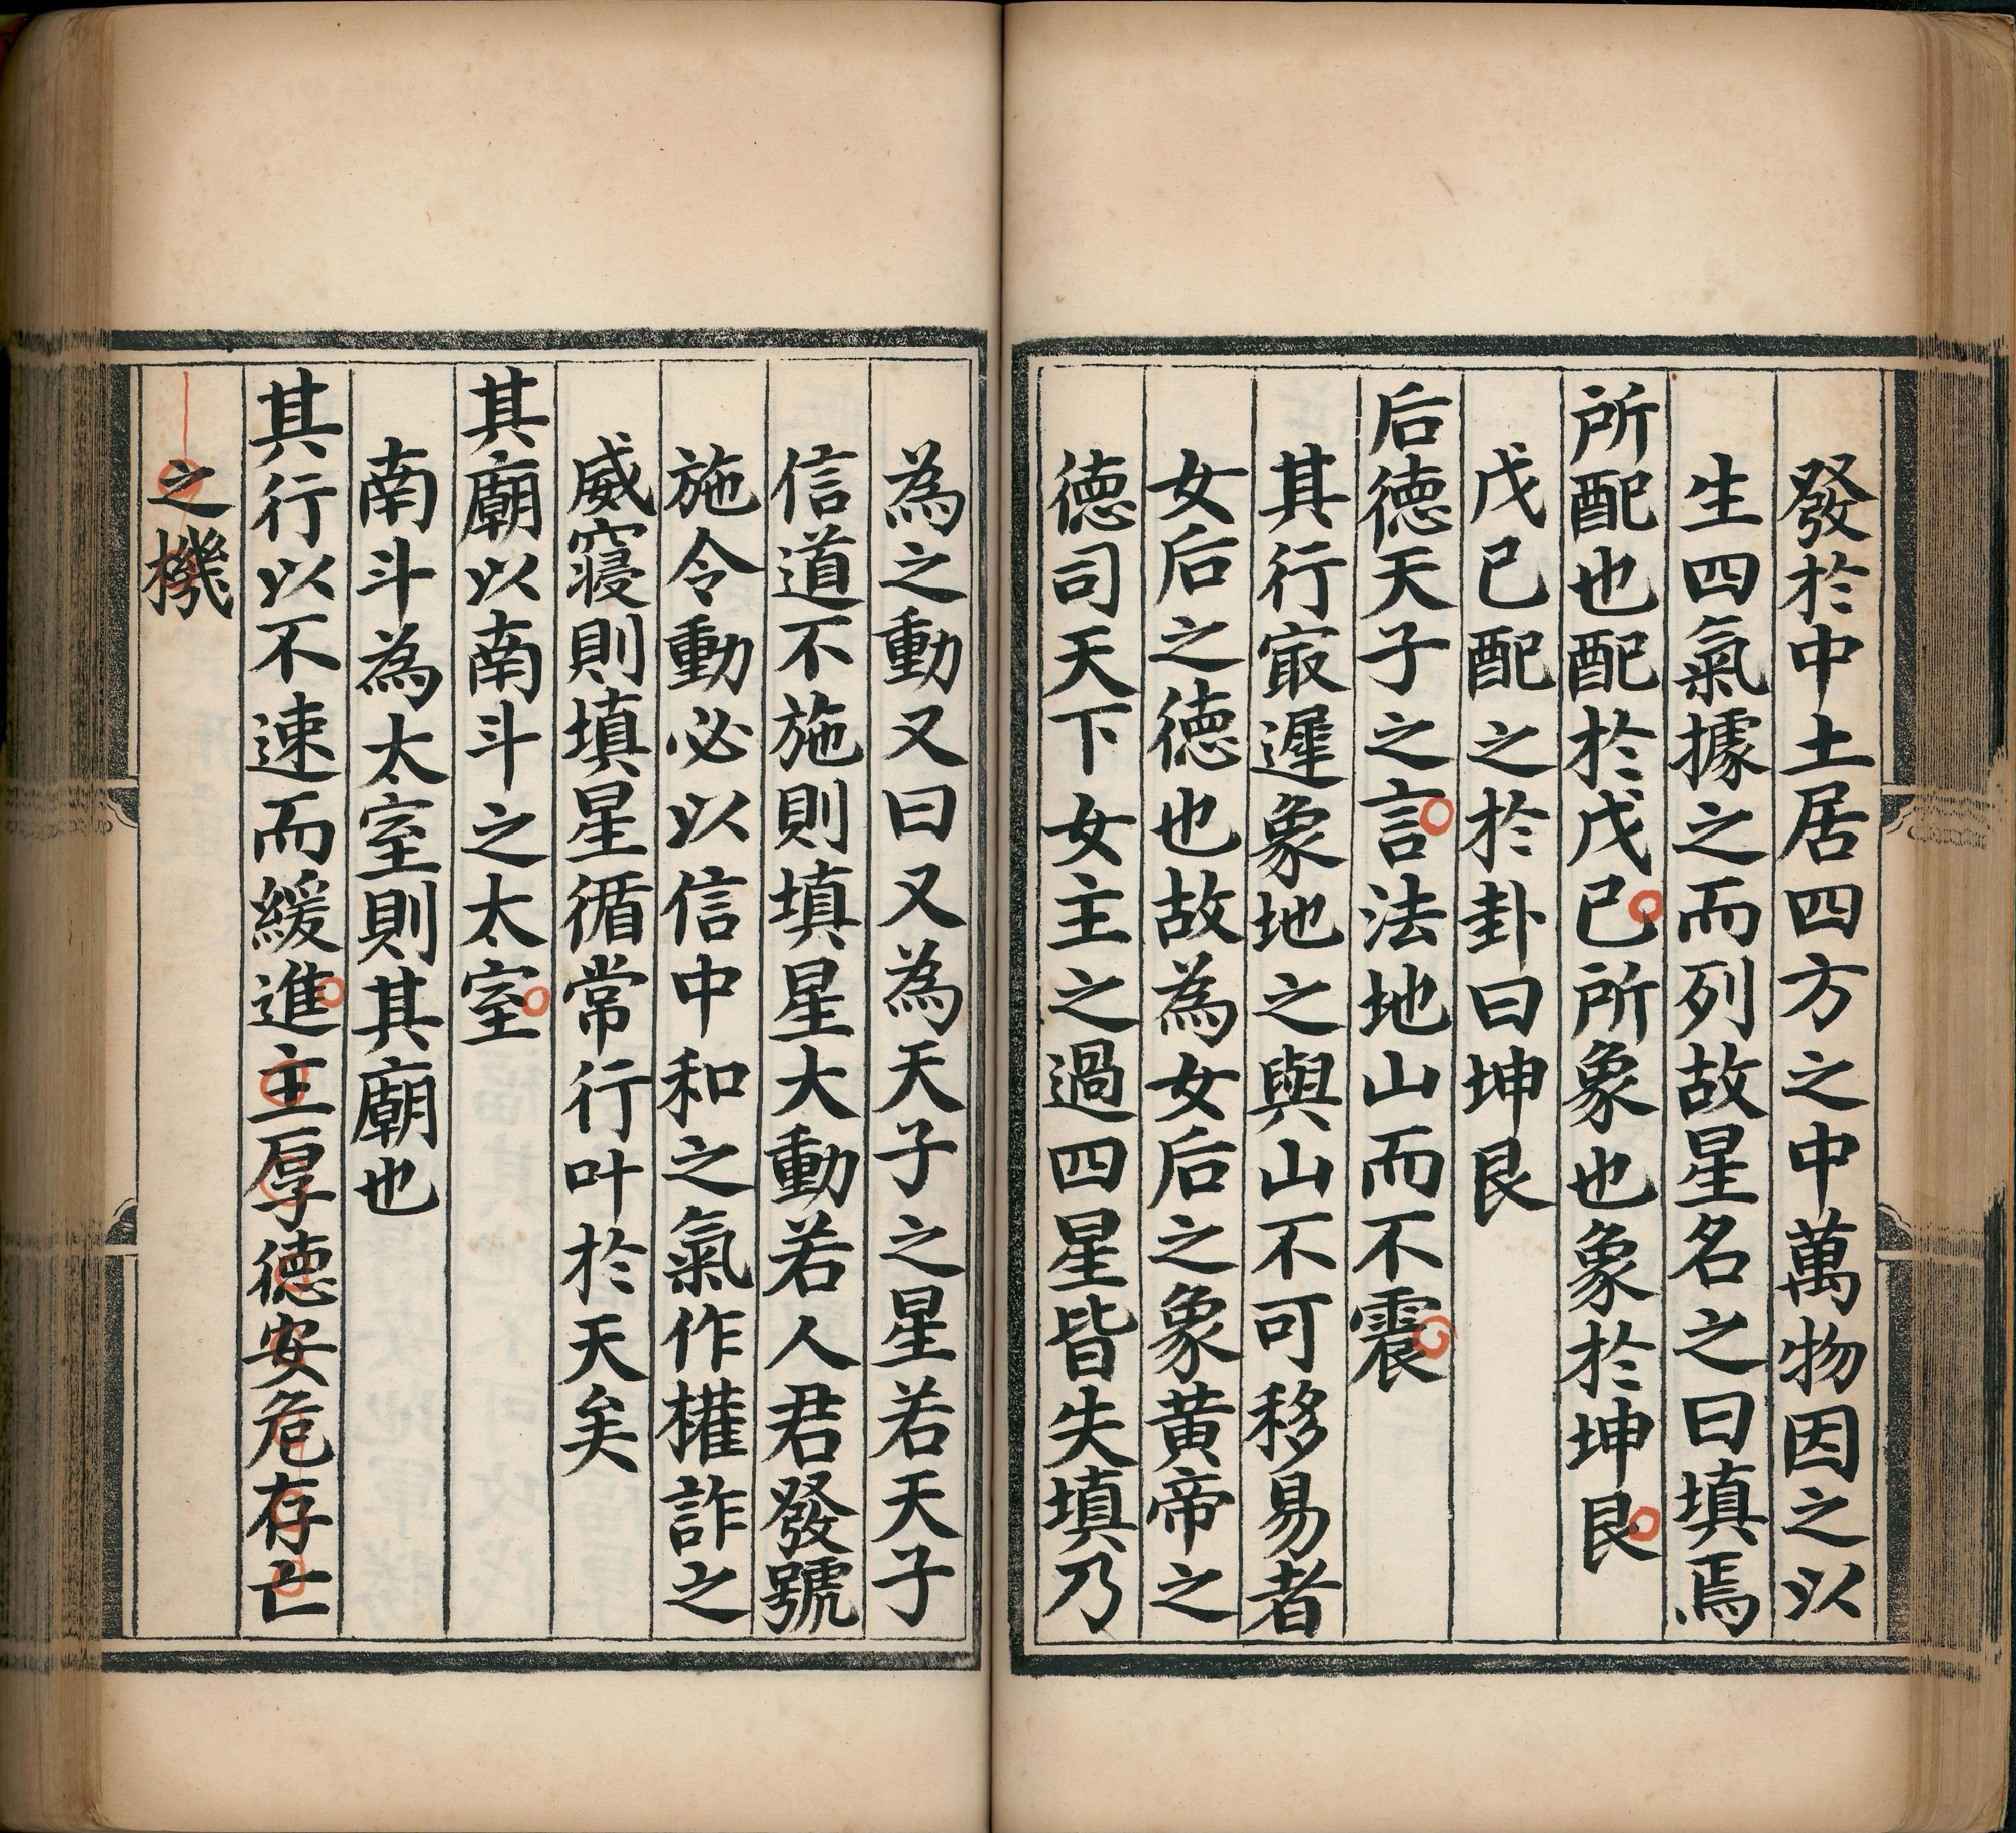 發於中土居四方之中萬物因之以
生四氣據之而列故星名之曰填焉
所配也配於戊己所象也象於坤艮
戊己配之於卦曰坤艮
后德天子之言法地山而不震
其行㝡遲象地之與山不可移易者
女后之德也故為女后之象黃帝之
德司天下女主之過四星皆失填乃
為之動又曰又為天子之星若天子
信道不施則填星大動若人君發號
施令動必以信中和之氣作權詐之
威寢則填星循常行叶於天矣
其廟以南斗之太室
南斗為太室則其廟也
其行以不速而緩進主厚德安危存亡
之機